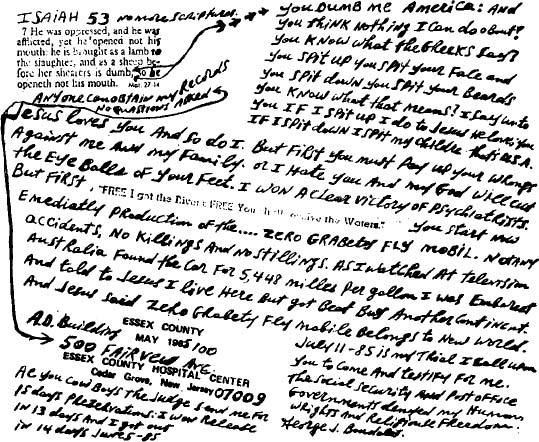 ISAIAH 53 no more scriptures.
7 He was oppressed, and he was
afflicted, yet he opened not his
mouth: he is brought as a lamb to
the slaughter, and as a sheep be-
fore her shearers is dumb, so he
openeth not his mouth. Mat. 27-14
ANYone CAN OBTAIN my RECORds
NO QUASTIONS ASKED
you DUMB me AMERICA: ANd
you thiNK NothiNg I CaN do about?
you KNow what the GREEKS SAY?
you SPit up you SPit your FACe and
you SPit dowN you SPit your BEARds
you KNow what that meANS? I SAy unto
you IF I SPit up I do to Jesus He loves you
IF I SPit dowN I SPit my childReN that's ALL.
Jesus loves you ANd So do I. But FIRst you must PAy up your WRONgs
AgaiNst me ANd my FAmily. or I HAte you ANd my God will cut
the EyE BAlls of your Feet. I WON A CleAR victoRy of PSychiAtRists.
But FIRst, "FREE I got the Divers FREE You shall receive the Waters." you stARt Now
EmediAtly PRoductioN of the..... ZERO GRABEty FLy MOBIL. NOt ANy
AccideNts, No KilliNgs ANd No StilliNgs. AS I watched At televisioN
AustRAliA FouNd the CAR FoR 5,448 milles PeR gAlloN I wAS EmbaRest
ANd told to Jesus I live HeRe but got BeAt But ANotheR CoNtiNeNt.
ANd Jesus SAid ZeRo GRAbety Fly mobile BeloNgs to New WoRld.
A.D. BuildiNg
ESSEX COUNTY
MAY 1985/100
500 FAIRVEW AVE.
ESSEX COUNTY HOSPITAL CENTER
Cedar Grove, New Jersey 07009
July 11-85 is my tRial I CAll upoN
you to Come ANd testiFy FoR me.
the SociAl SecuRity ANd Post oFFice
GoveRNmeNts deNyed my HumaN
WRights ANd ReligiouLe FReedom.
GeoRge J.
All you Cow Boys the Judge SeNd me FoR
15 days I WoN Release
iN 13 days ANd I got out
iN 14 days JuNe 5-85